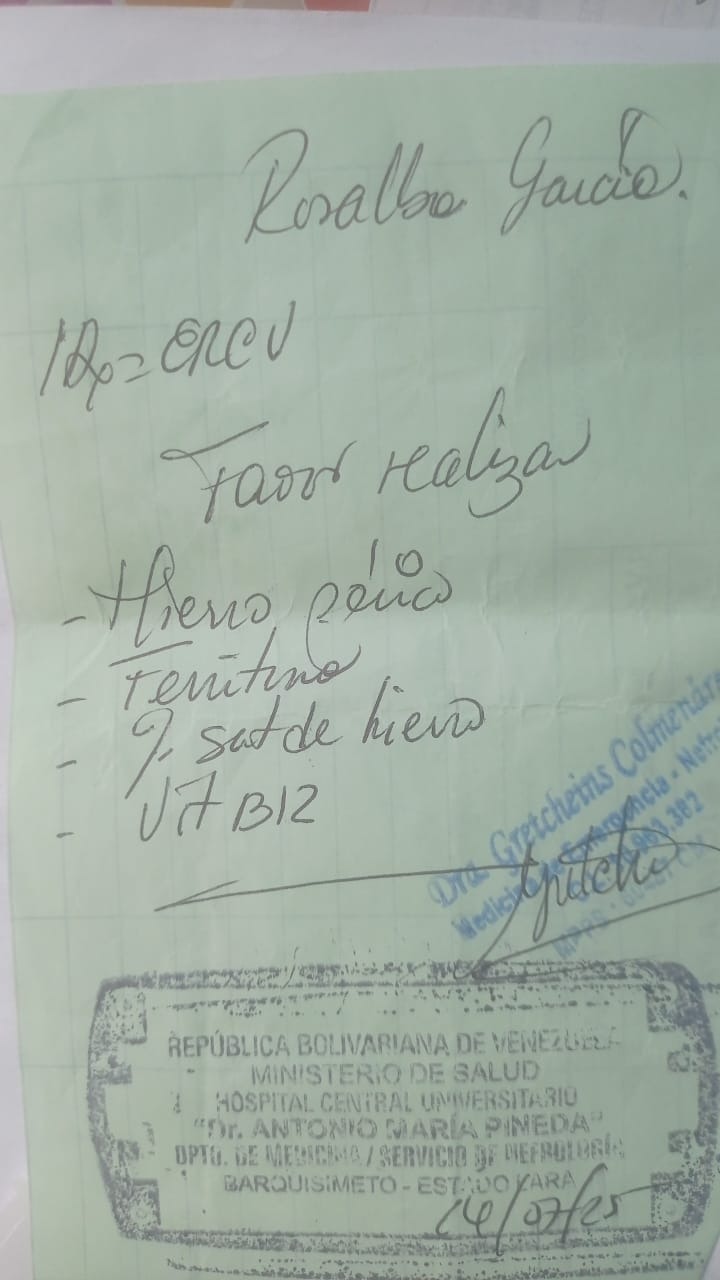 Rosalba García.
IDx= ERC V
Favor realizar
- Hierro sérico
- Ferritina
- % sat de hierro
- VIT B12
Dra. Gretcheins Colmenár
Medicina
382
REPÚBLICA BOLIVARIANA DE VENEZUELA
MINISTERIO DE SALUD
HOSPITAL CENTRAL UNIVERSITARIO
"Dr. ANTONIO MARÍA PINEDA"
DPTO. DE MEDICINA / SERVICIO DE NEFROLOGÍA
BARQUISIMETO - ESTADO LARA
/07/25